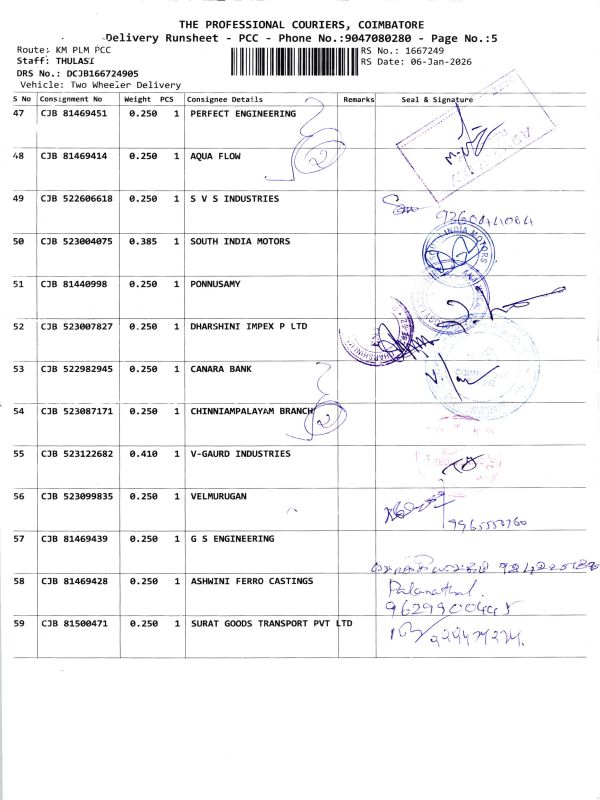 THE PROFESSIONAL COURIERS, COIMBATORE
Delivery Runsheet - PCC - Phone No.:9047080280 - Page No.:5
Route: KM PLM PCC RS No.: 1667249
Staff: THULASI RS Date: 06-Jan-2026
DRS No.: DCJB166724905
Vehicle: Two Wheeler Delivery
S No Consignment No Weight PCS Consignee Details Remarks Seal & Signature
47 CJB 81469451 0.250 1 PERFECT ENGINEERING
48 CJB 81469414 0.250 1 AQUA FLOW
49 CJB 522606618 0.250 1 S V S INDUSTRIES
50 CJB 523004075 0.385 1 SOUTH INDIA MOTORS
INDIA MOTORS
51 CJB 81440998 0.250 1 PONNUSAMY
52 CJB 523007827 0.250 1 DHARSHINI IMPEX P LTD
53 CJB 522982945 0.250 1 CANARA BANK
54 CJB 523087171 0.250 1 CHINNIAMPALAYAM BRANCH
55 CJB 523122682 0.410 1 V-GAURD INDUSTRIES
56 CJB 523099835 0.250 1 VELMURUGAN
57 CJB 81469439 0.250 1 G S ENGINEERING
58 CJB 81469428 0.250 1 ASHWINI FERRO CASTINGS
59 CJB 81500471 0.250 1 SURAT GOODS TRANSPORT PVT LTD